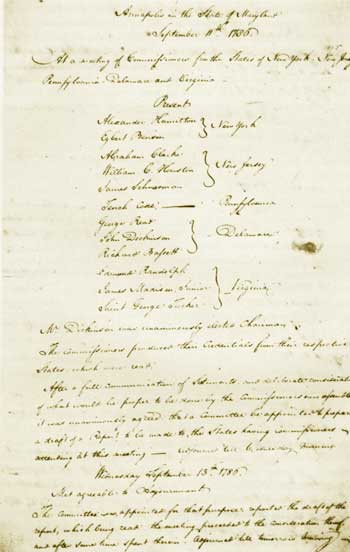 Annapolis in the State of Maryland
September 11th 1786
At a meeting of Commissioners from the States of New York, New Jersey
Pennsylvania Delaware and Virginia
Present
Alexander Hamilton
Egbert Benson
New York
Abraham Clarke
William C. Houston
James Schureman
New Jersey
Tench Coxe
Pennsylvania
George Read
John Dickinson
Richard Bassett
Delaware
Edmund Randolph
James Madison Junior
Saint George Tucker
Virginia
Mr. Dickinson was unanimously elected Chairman
The Commissioners produced their Credentials from their respective
States, which were read
After a full communication of Sentiments, and deliberate consideration
of what would be proper to be done by the Commissioners now assembled
it was unanimously agreed, that a Committee be appointed to prepare
a draft of a Report to be made to the States having Commissioners
attending at this meeting — adjourned till Wednesday morning
Wednesday September 13th 1786
Met agreeable to Adjournment
The Committee, appointed for that purpose, reported the draft of the
report, which being read, the meeting proceeded to the consideration thereof,
and after some time spent therein, Adjourned till tomorrow Morning